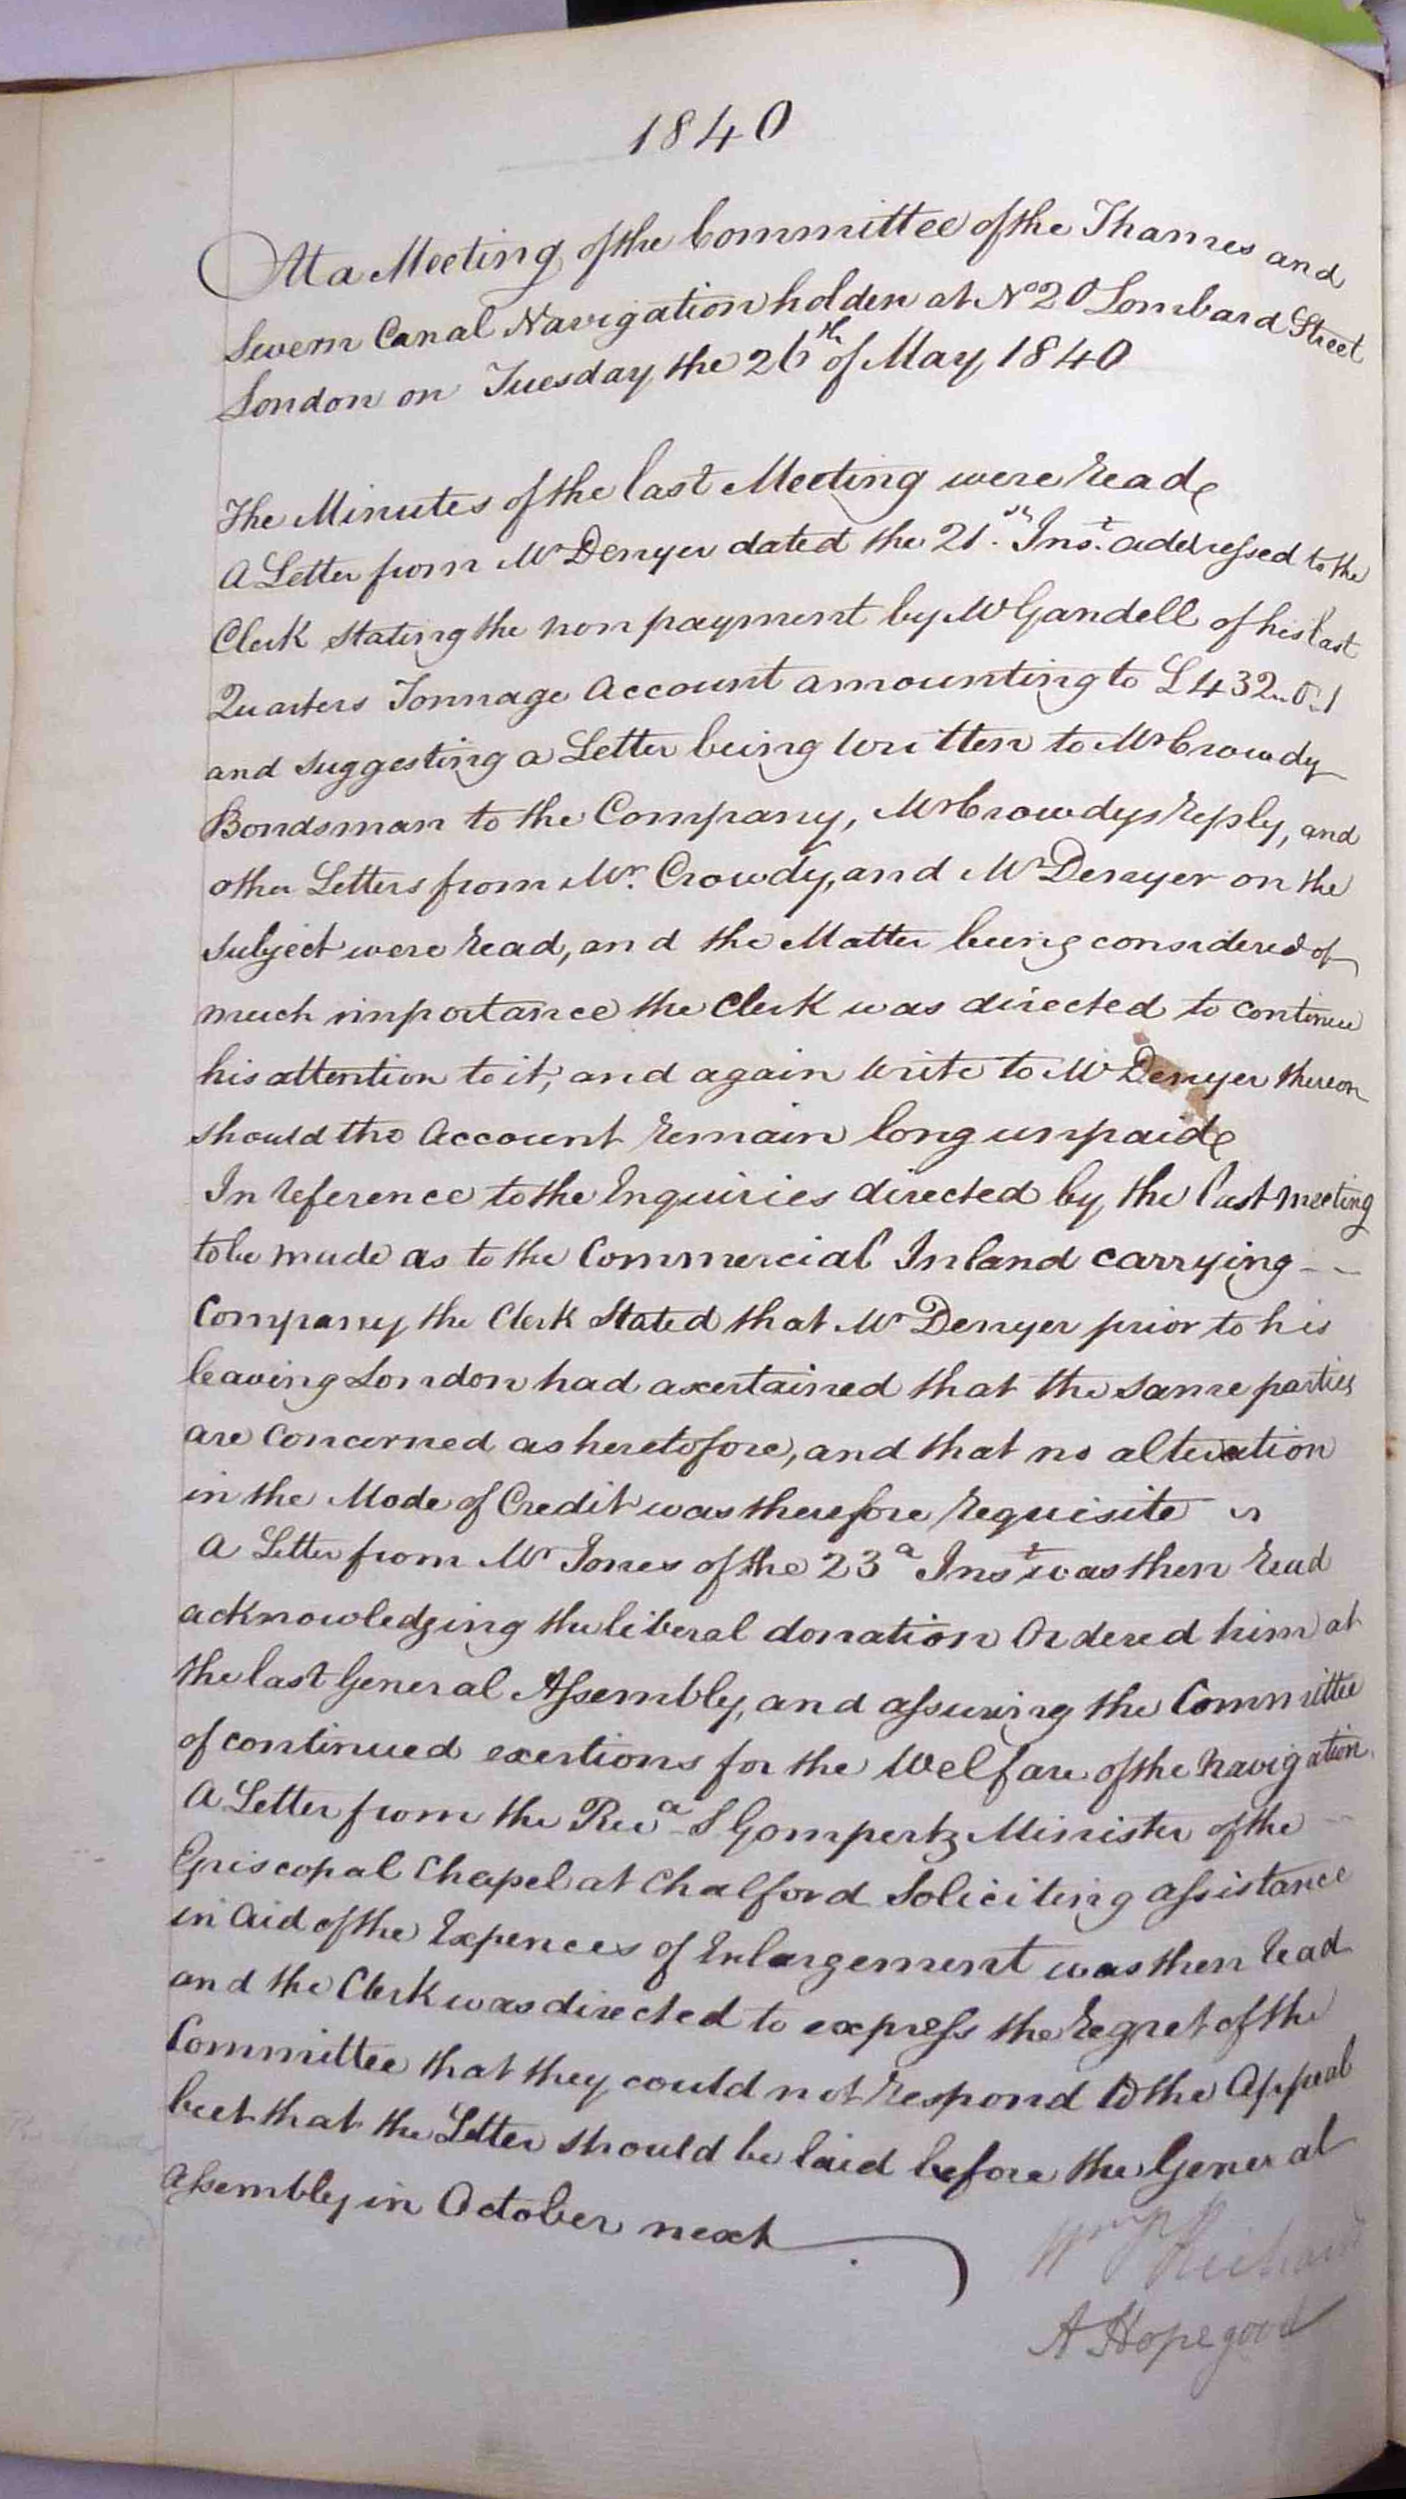 1840
At a Meeting of the Committee of the Thames and
Severn Canal Navigation holden at No 20 Lombard Street
London on Tuesday the 26th of May 1840
The Minutes of the last Meeting were read
A Letter from Mr Denyer dated the 21st Inst. addressed to the
Clerk stating the non payment by Mr Gandell of his last
Quarters Tonnage Account amounting to £432..0..1
and suggesting a Letter being written to Mr Crowdy
Bondsman to the Company, Mr Crowdys reply, and
other Letters from Mr. Crowdy, and Mr Denyer on the
subject were read, and the Matter being considered of
much importance the Clerk was directed to continue
his attention to it, and again write to Mr Denyer thereon
should the Account remain long unpaid
In reference to the Inquiries directed by the last meeting
to be made as to the Commercial Inland carrying
Company the Clerk Stated that Mr Denyer prior to his
leaving London had ascertained that the same parties
are concerned as heretofore, and that no alteration
in the Mode of Credit was therefore requisite
A Letter from Mr Jones of the 23d Inst was then read
acknowledging the liberal donation Ordered him at
the last General Assembly, and assuring the Committee
of continued exertions for the Welfare of the Navigation.
A Letter from the Revd S Gompertz Minister of the
Episcopal Chapel at Chalford Soliciting assistance
in Aid of the Expences of Enlargement was then read
and the Clerk was directed to express the regret of the
Committee that they could not respond to the Appeal
but that the Letter should be laid before the General
Assembly in October next
A Hopegood